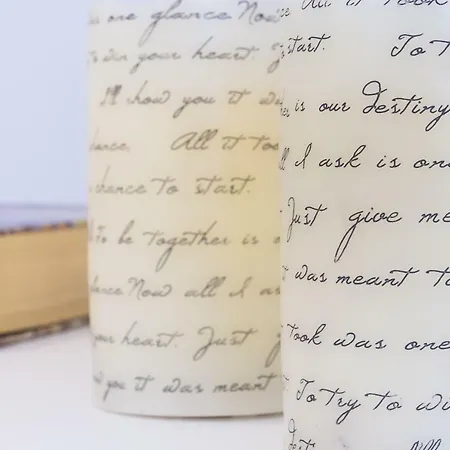 one glance Now
win your heart.
I'll show you it
All it
chance to start.
To be together is
Now all I as
your heart. Just
you it was meant
All it took
start. To T
is our destiny
I ask is on
Just give me
was meant to
took was one
To try to wi